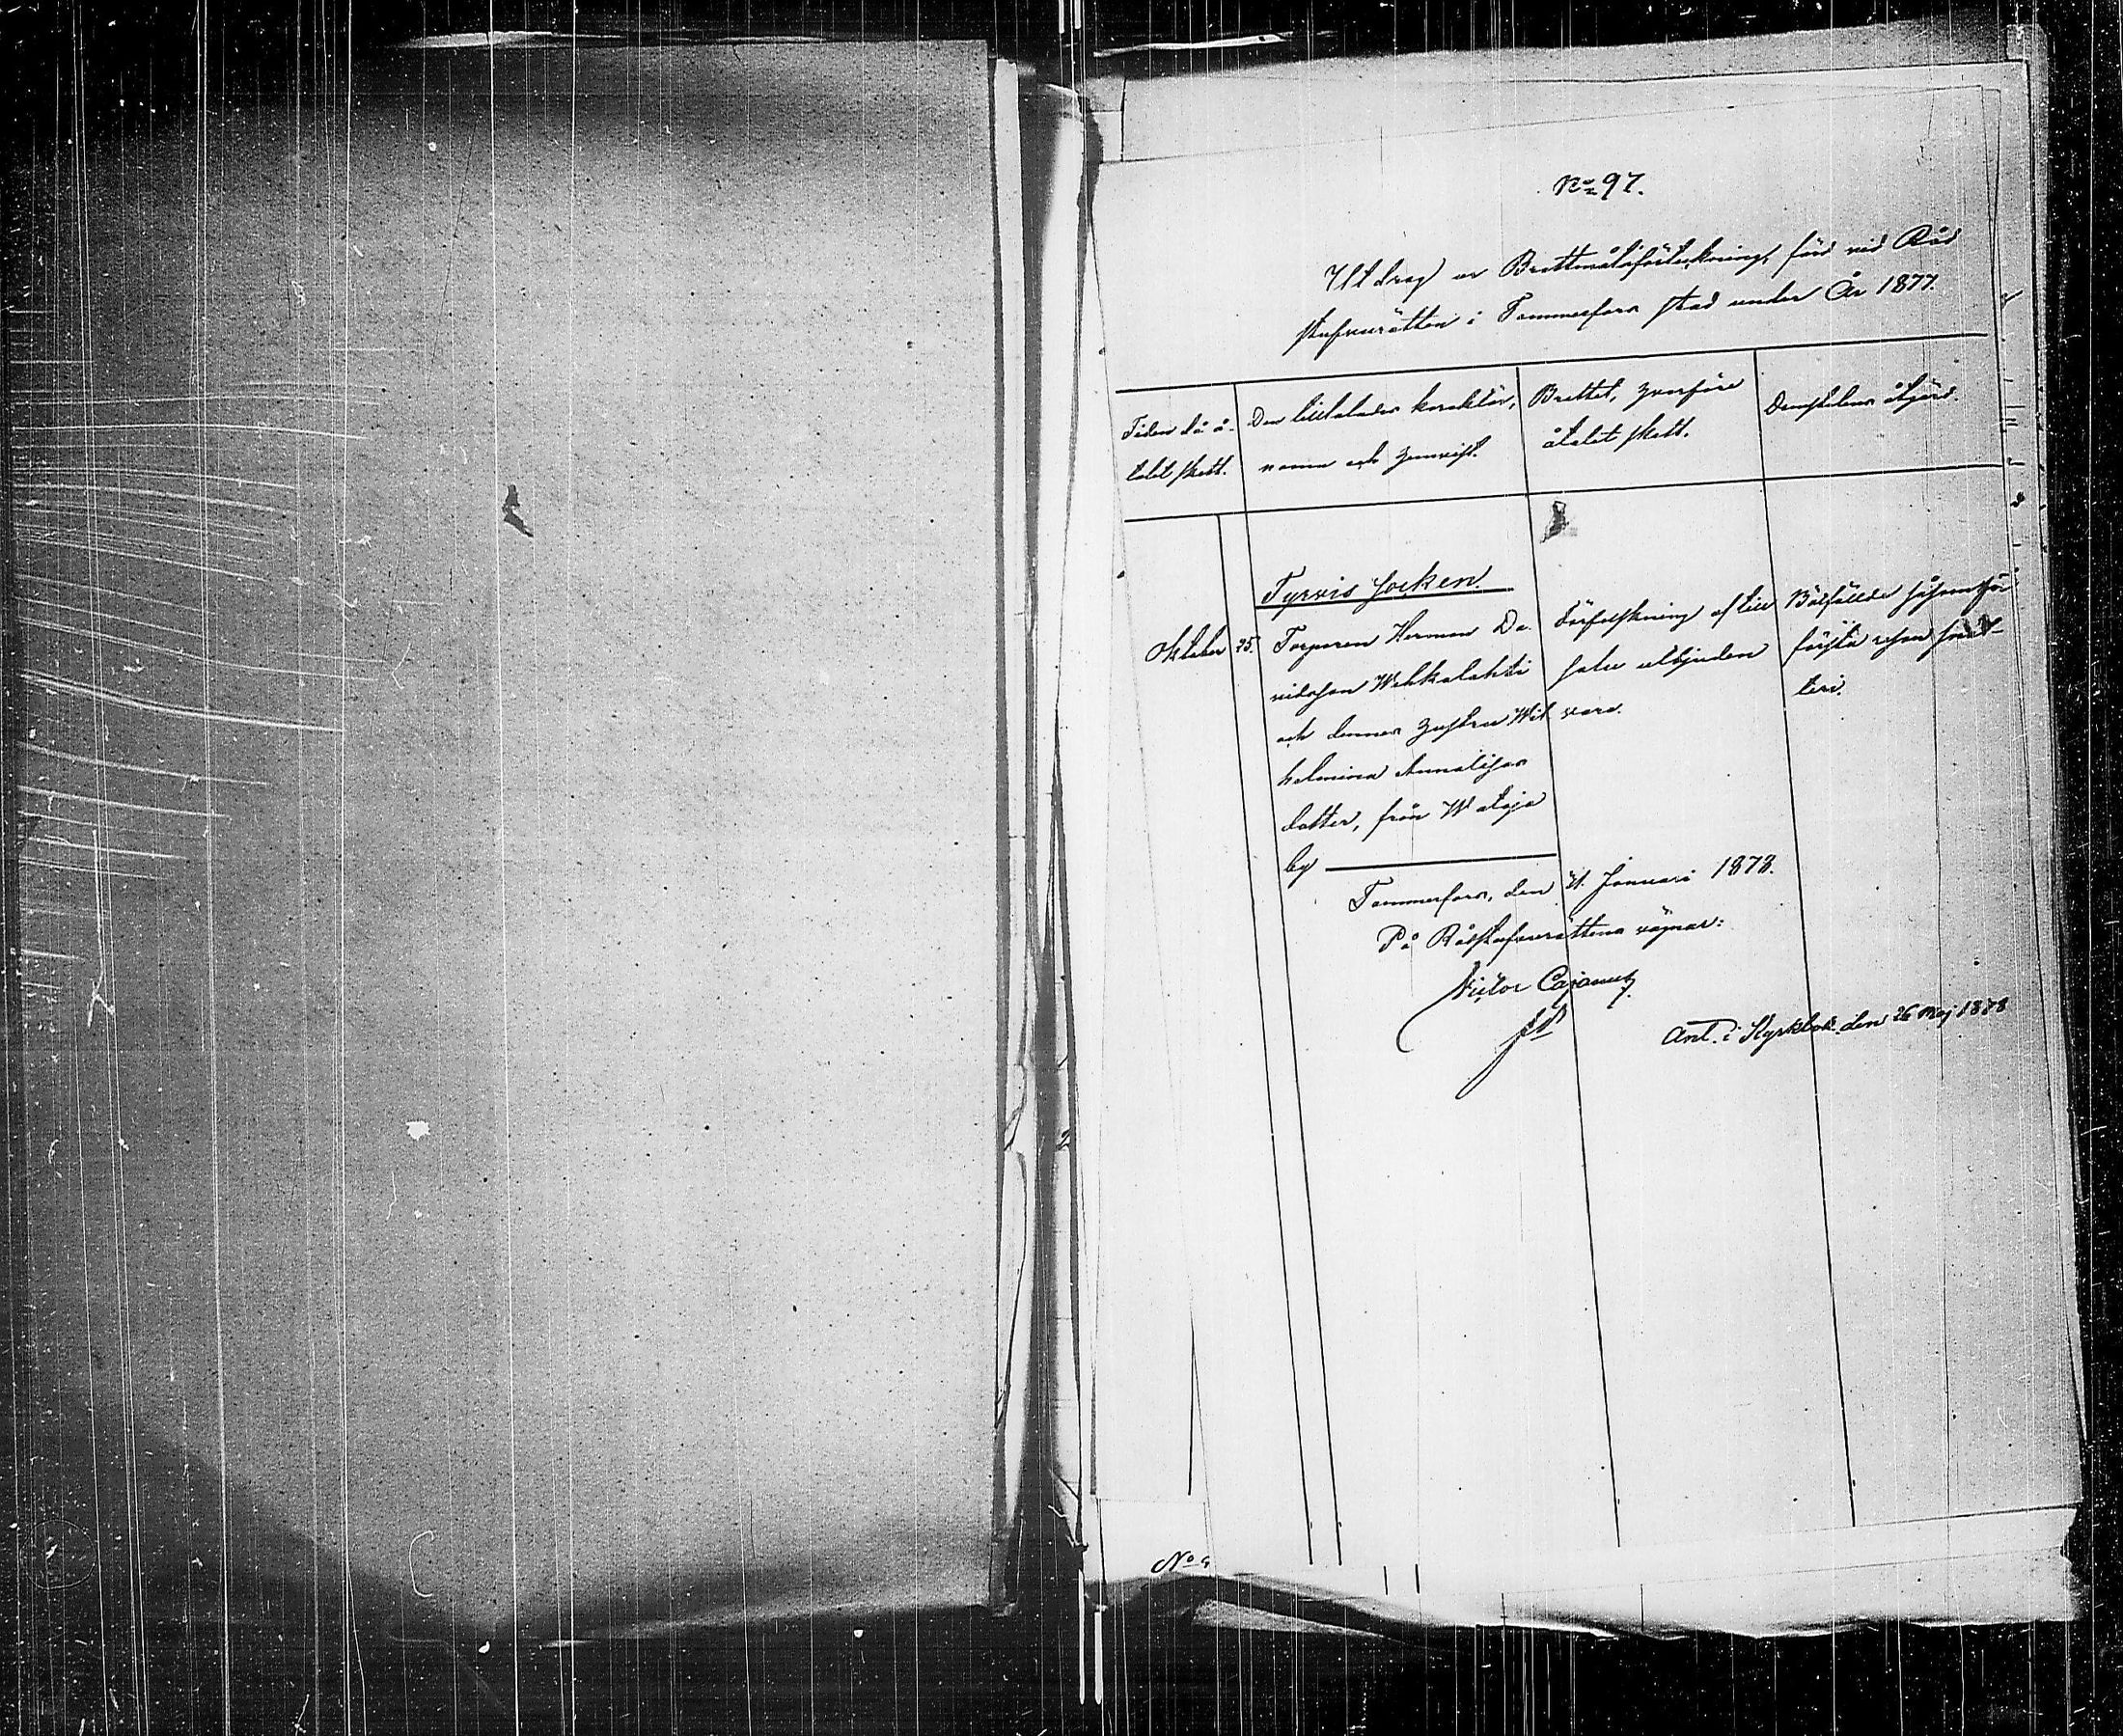 No 97.
Utdrag ur Brottmålsförteckning, förd vid Råd
stufvurätten i Tammerfors stad under År 1877.
Tiden då å-
talet skett.
Den tilltalades karaktär,
namn och hemvist.
Brottet, hvarföre
åtalet skett.
Domstolens åtgärd.
Tyrvis Socken.
Oktober 25.
Torparen Herman Da-
vidsson Wehkalahti
och dennes hustru Wil
helmina Annalisas
dotter, från Wataja
by
Förfalskning af till
salu utbjuden
vara.
Bötfällde såsom för
första resan
Tammerfors, den 21. Januari 1878.
På Rådstufvurättens vägnar:
Victor Cajanus
Ant. i Kyrkbok. den 26 Maj 1878
No